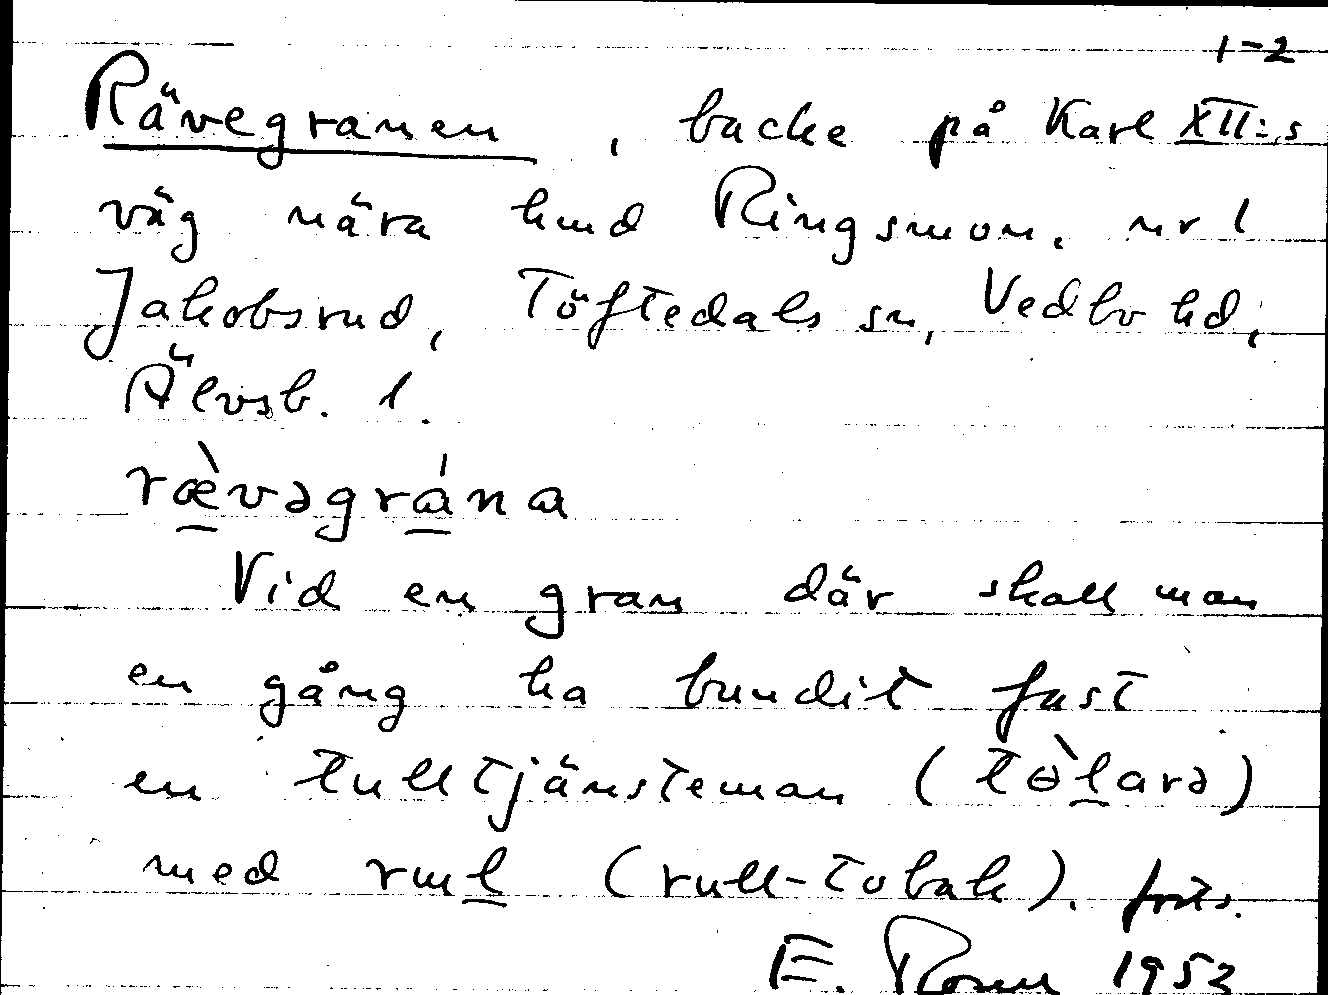 1-2
Rävegranen, backe på Karl XII:s
väg nära hmd Ringsmon, nr 1
Jakobsrud, Töftedals sn, Vedbo hd,
Älvsb. l.
ræ̀vəgrána
Vid en gran där skall man
en gång ha bundit fast
en tulltjänsteman (tɵ̀larə)
med rɯl (rull-tobak). forts.
E. 1953